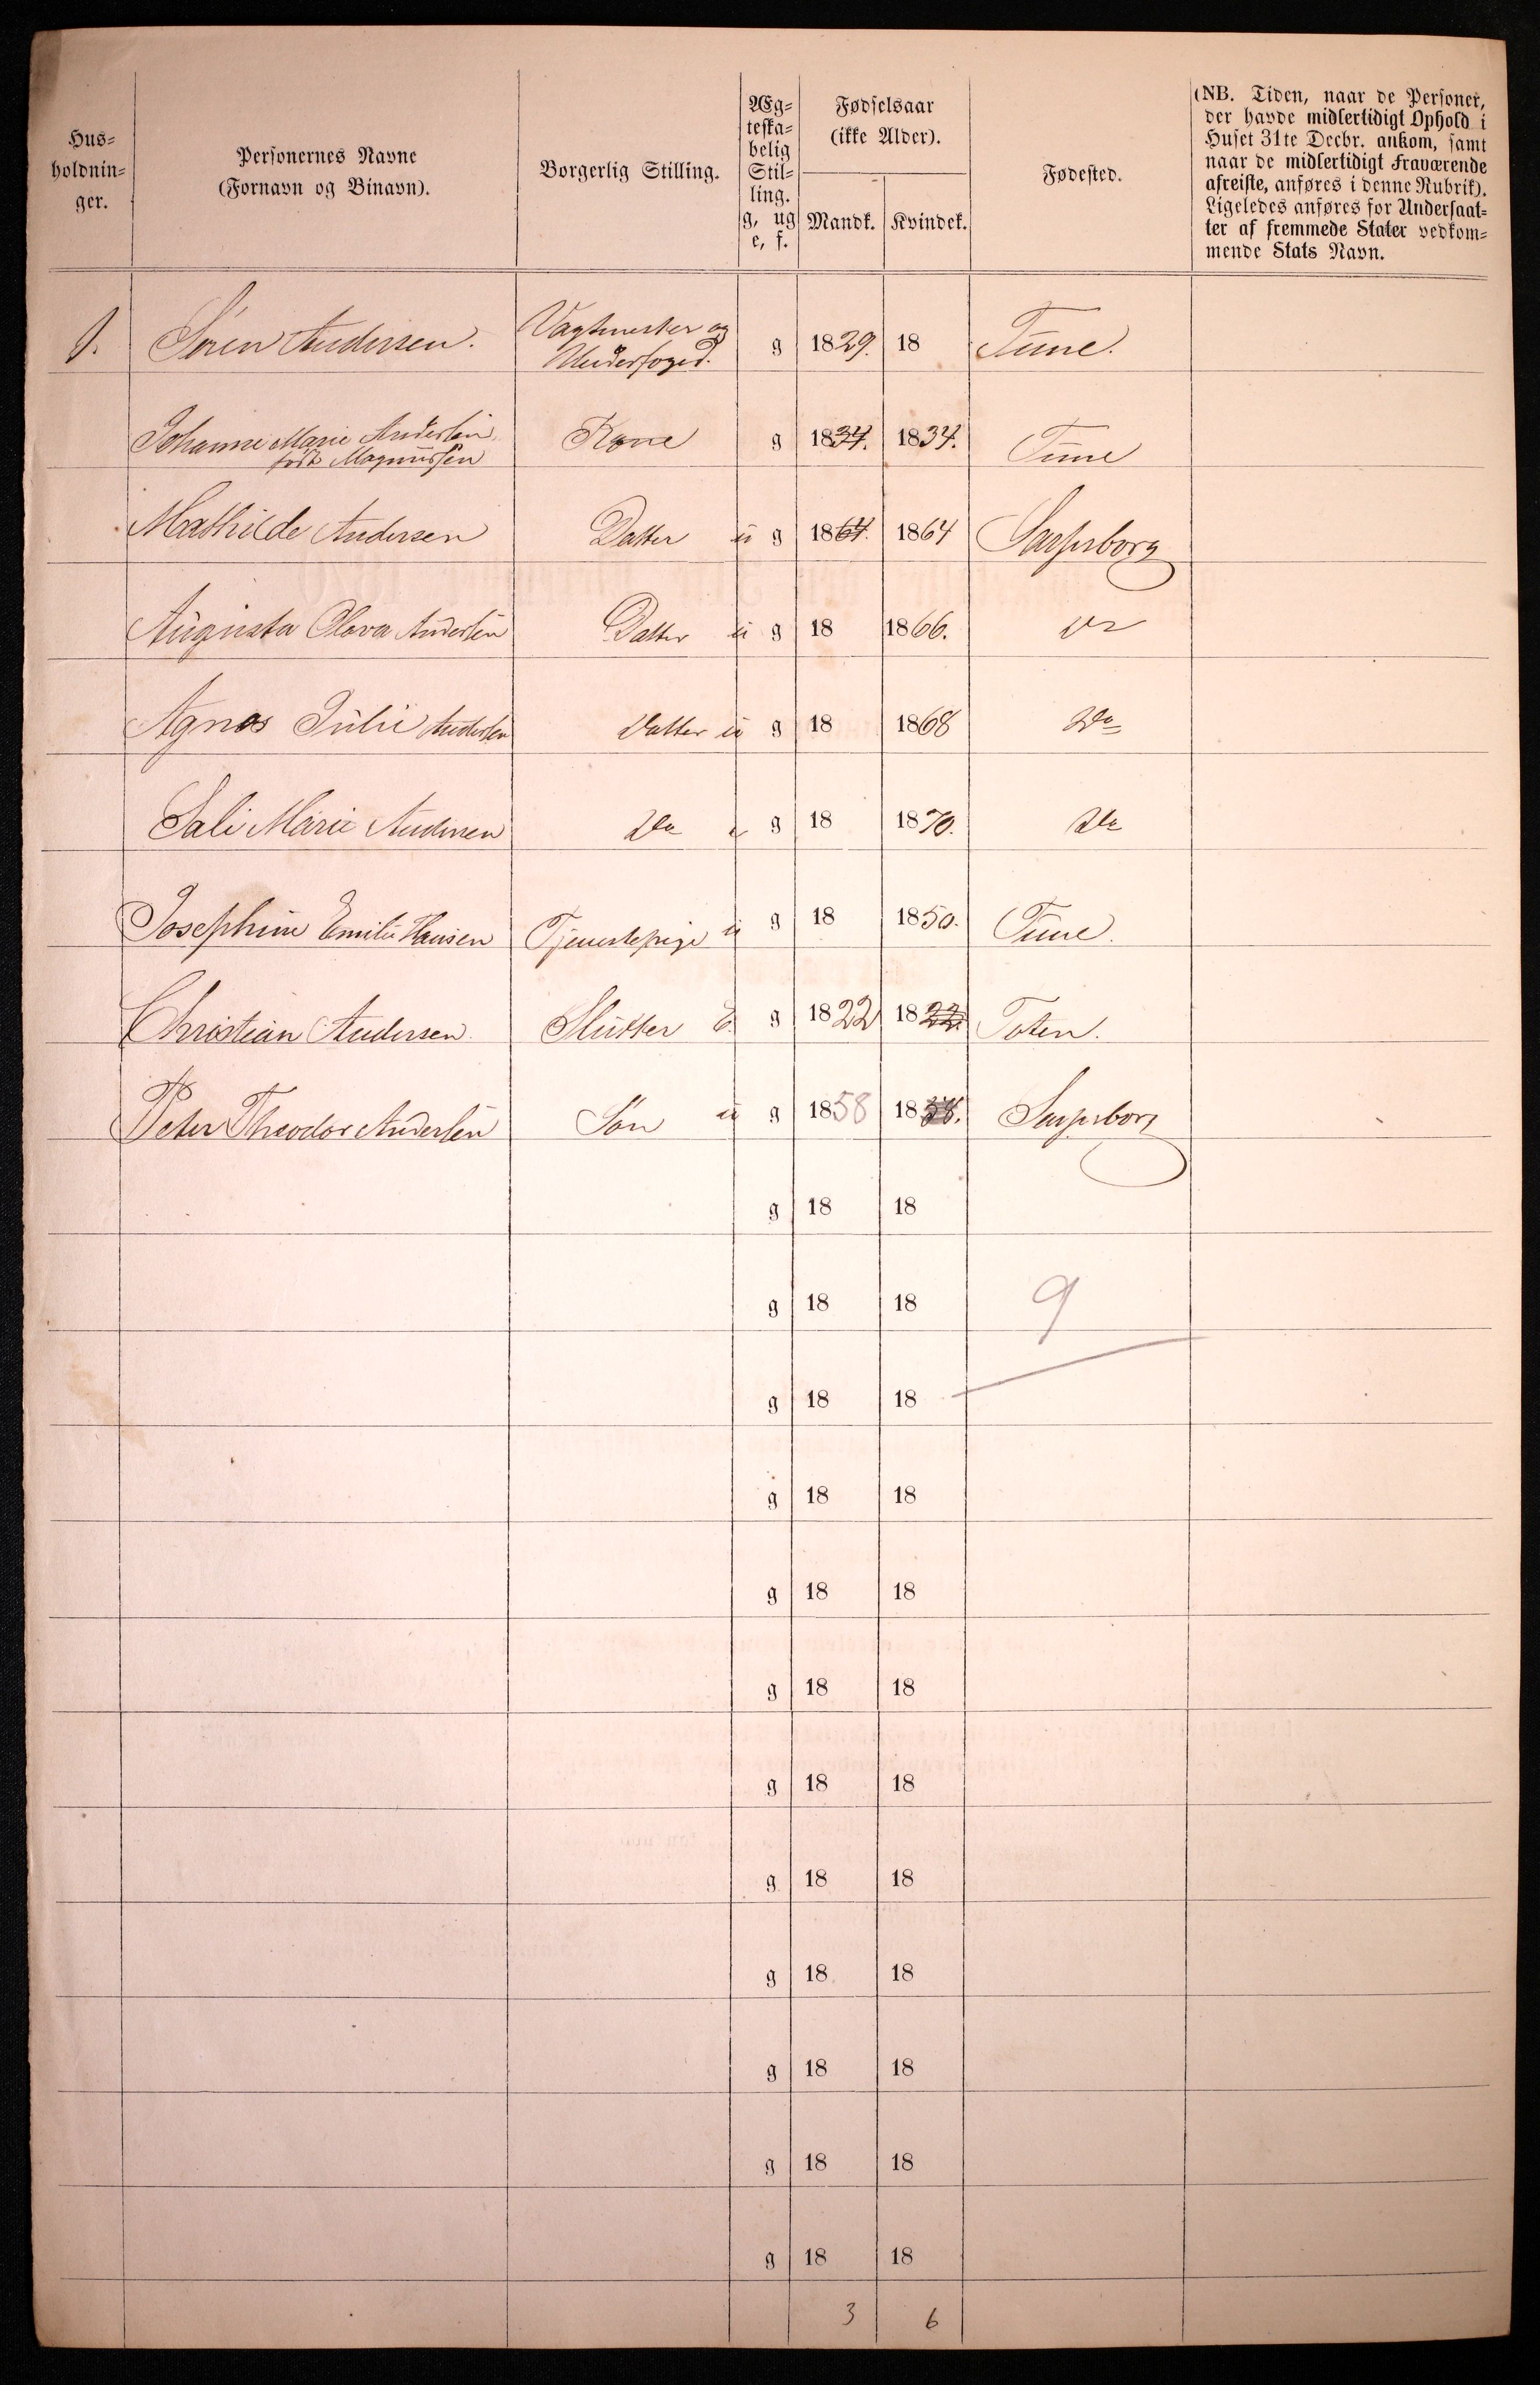 Hus-
holdnin-
ger.
Personernes Navne
(Fornavn og Binavn).
Borgerlig Stilling.
Æg-
teska-
belig
Stil-
ling.
g, ug
e, f.
Fødselsaar
(ikke Alder).
Mandk. Kvindek.
Fødested.
(NB. Tiden, naar de Personer,
der havde midlertidigt Ophold i
Huset 31te Decbr. ankom, samt
naar de midlertidigt Fraværende
afreiste, anføres i denne Rubrik).
Ligeledes anføres for Undersaat-
ter af fremmede Stater vedkom-
mende Stats Navn.
1. Sören Andersen. Vagtmester og g 1829. 18 Tune.
Underfoged.
Johanne Marie Andersen Kone g 1834. 1834. Tune
född Magnussen
Mathilde Andersen Datter u g 1864. 1864 Sarpsborg
Augusta Olava Andersen Datter u g 18 1866. Do
Agnes Julie Andersen Datter u g 18 1868 Do
Sali Marie Andersen Do u g 18 1870. Do
Josephine Emilie Hansen Tjenestepige u g 18 1850. Tune.
Christian Andersen Slutter E. g 1822 1822. Toten.
Peter Theodor Andersen Sön u g 1858 1858. Sarpsborg
g 18 18
g 18 18 9
g 18 18
g 18 18
g 18 18
g 18 18
g 18 18
g 18 18
g 18 18
g 18 18
g 18 18
g 18 18
3 6